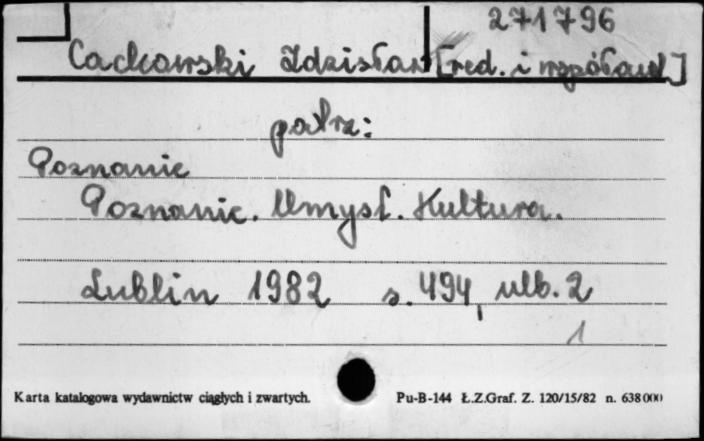 271796
Cackowski Zdzisław [red. i współaut.]
patrz:
Poznanie
Poznanie. Umysł. Kultura.
Lublin 1982 s. 494, ulb. 2
1
Karta katalogowa wydawnictw ciągłych i zwartych. Pu-B-144 Ł.Z.Graf. Z. 120/15/82 n. 638000